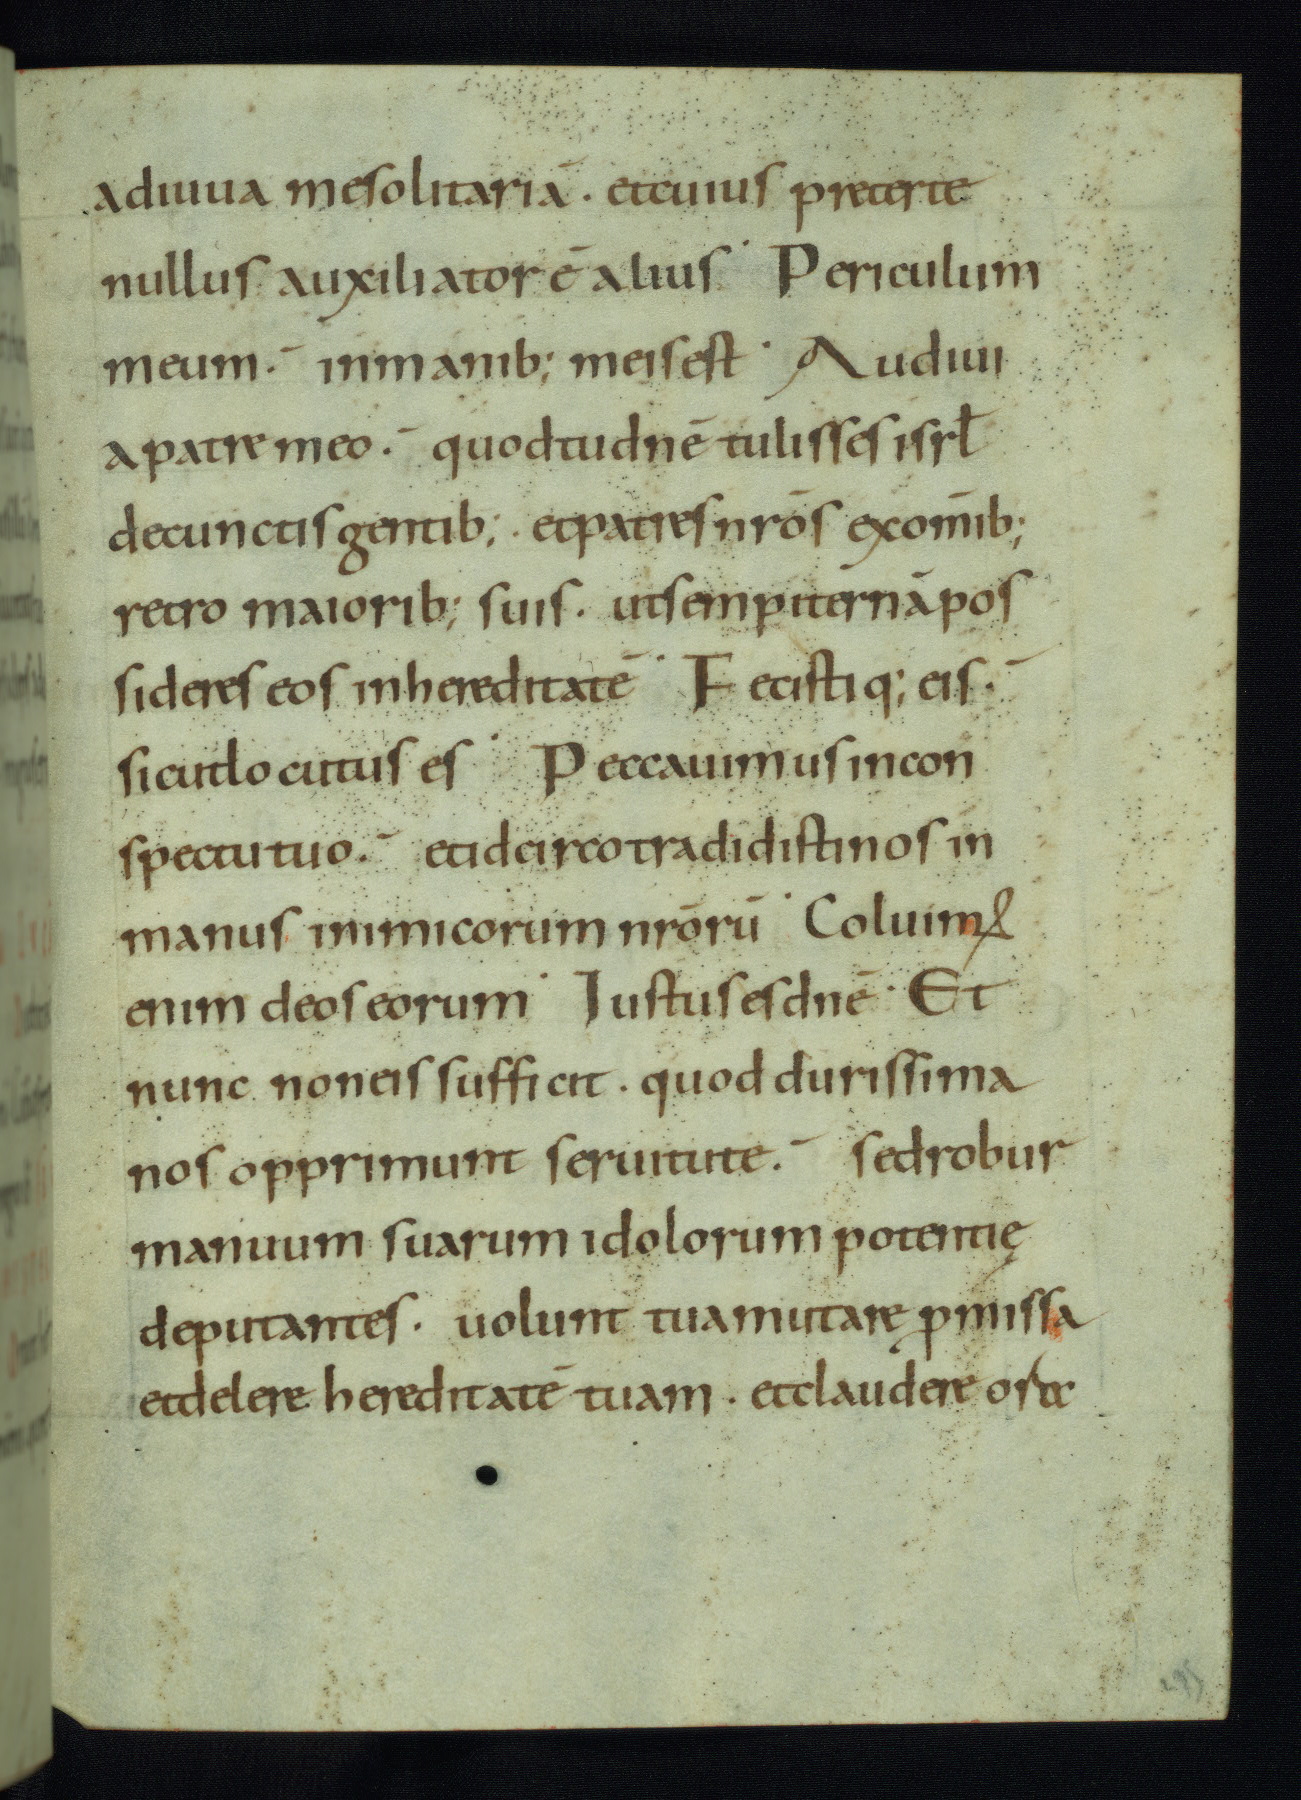 adiuua mesolitariā. etcuius preterte
nullus auxiliator ē alius· Periculum
meum.̄ inmanib; meisest· Audiui
apatre meo.̄ quodtudnē tulisses isrł
decunctisgentib;. etpatresnrōs exom̄ib;
retro maiorib; suis. utsempiternāpos
sideres eos inhereditatē· Fecistiq; eis.̄
sicutlocutus es· Peccauimusincon
spectutuo.̄ etidcircotradidistinos in
manus inimicorum nrōrū· Coluim᷒
enim deoseorum· Iustusesdnē· Et
nunc noneissufficit. quoddurissima
nos opprimunt seruitute.̄ sedrobur
manuum suarum idolorum potentię
deputantes. uolunt tuamutare ꝓmissa
etdelere hereditatē tuam. etclaudere